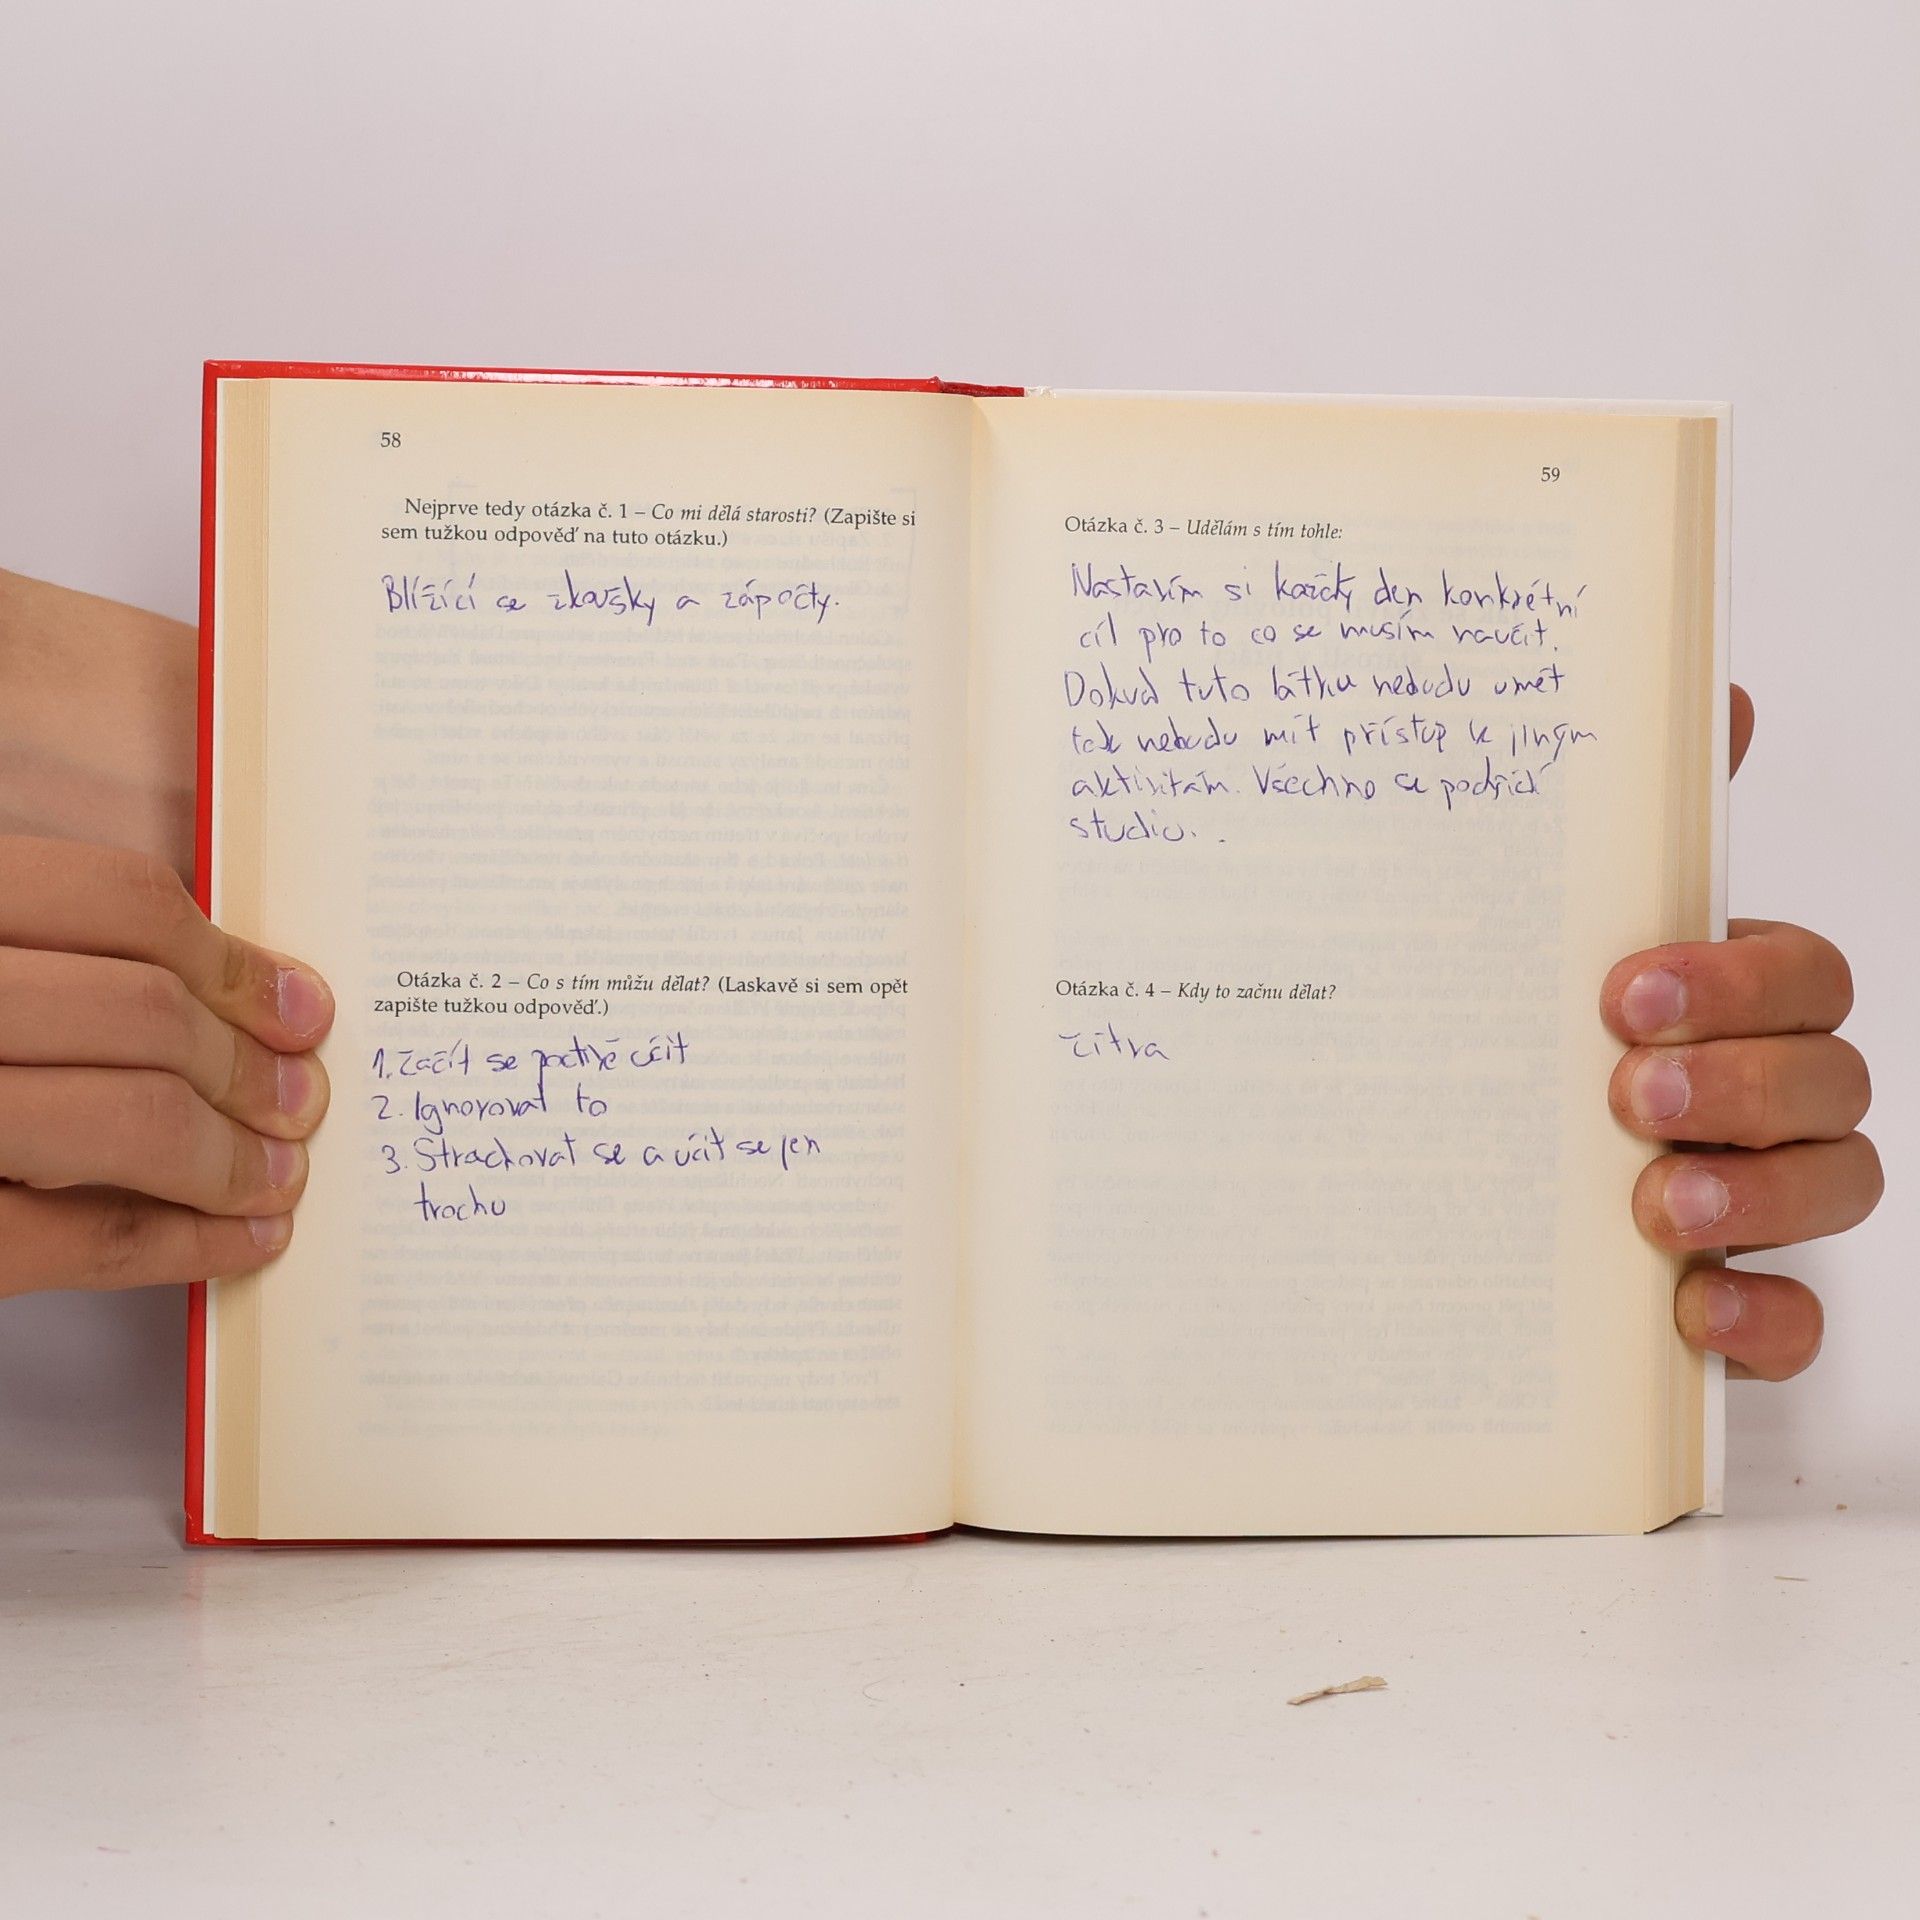 58
Nejprve tedy otázka č. 1 – Co mi dělá starosti? (Zapište si
sem tužkou odpověď na tuto otázku.)
Blížící se zkoušky a zápočty.
Otázka č. 2 – Co s tím můžu dělat? (Laskavě si sem opět
zapište tužkou odpověď.)
1. Začít se poctivě učit
2. Ignorovat to
3. Strachovat se a učit se jen
trochu
59
Otázka č. 3 – Udělám s tím tohle:
Nastavím si každý den konkrétní
cíl pro to co se musím naučit.
Dokud tuto látku nebudu umět
tak nebudu mít přístup k jiným
aktivitám. Všechno se podřídí
studiu.
Otázka č. 4 – Kdy to začnu dělat?
Zítra